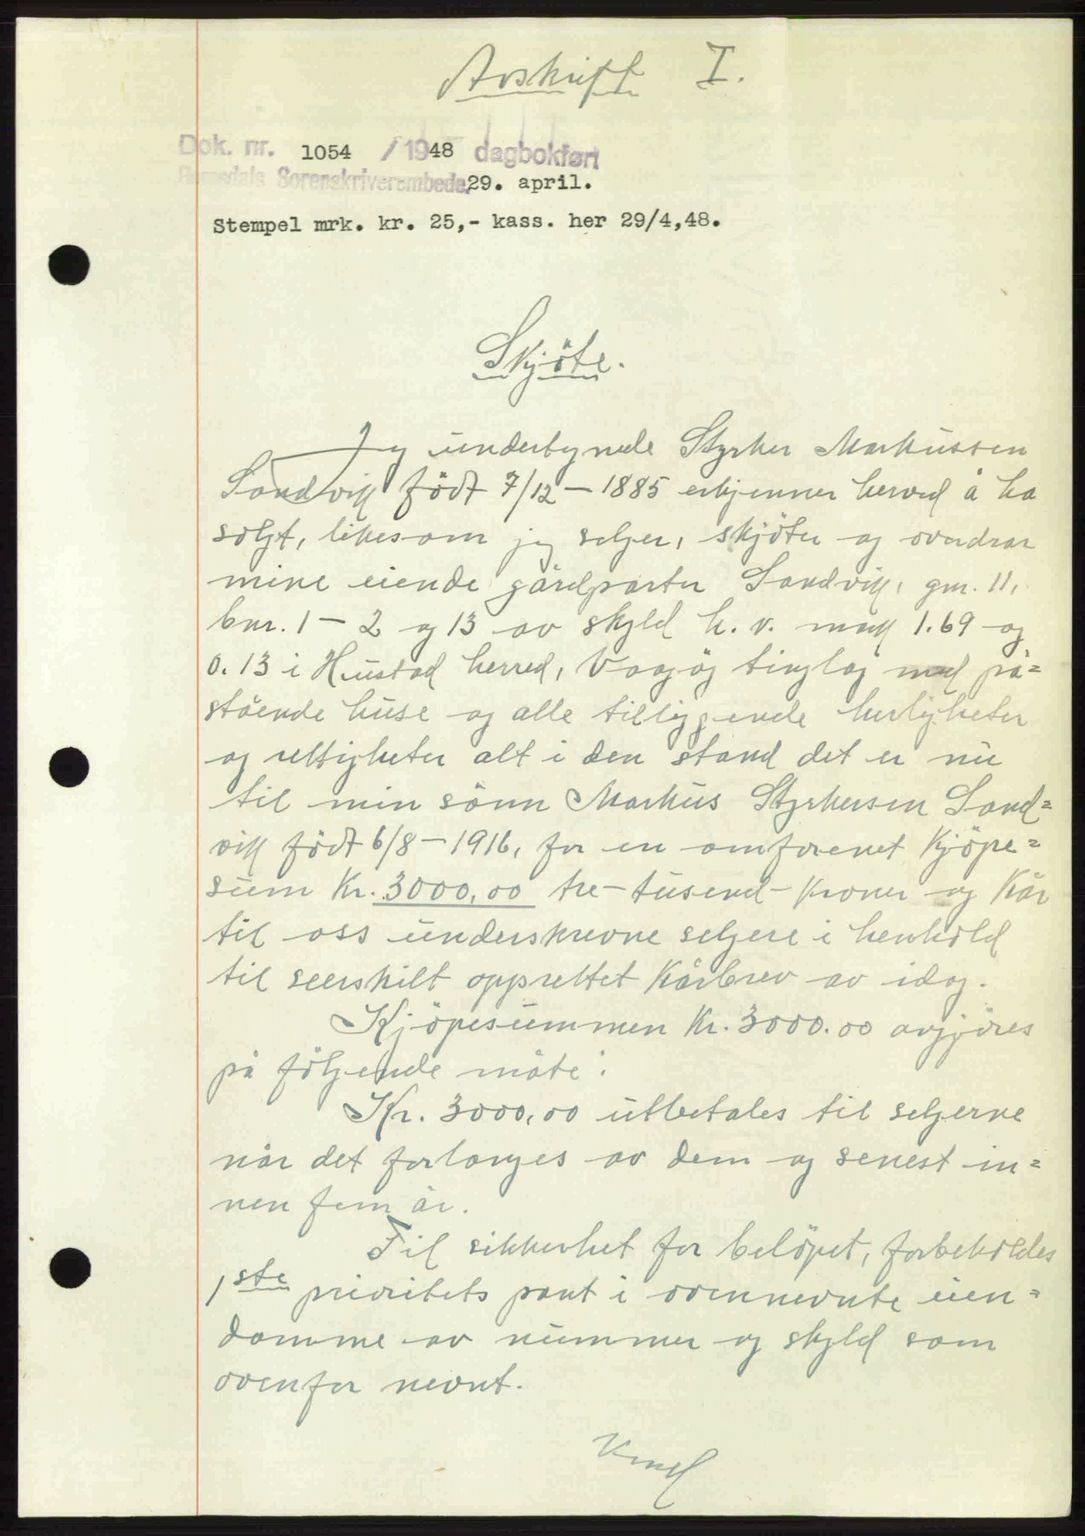 Avskrift I.
Dok. nr. 1054 / 1948 dagbokført
Romsdals Sorenskriverembede, 29. april.
Stempel mrk. kr. 25,- kass. her 29/4,48.
Skjöte.
Jeg undertegnede Styrker Markussen
Sandvik födt 7/12 - 1885 erkjenner herved å ha
solgt, likesom jeg selger, skjöter og overdrar
mine eiende gårdparter Sandvik, gnr. 11,
bnr. 1 - 2 og 13 av skyld h. v. mark 1.69 og
0.13 i Hustad herred, Vågöy tinglag med på=
stående huse og alle tilliggende herligheter
og rettigheter alt i den stand det er nu
til min sönn Markus Styrkersen Sand=
vik födt 6/8 - 1916, for en omforenet Kjöpe=
sum Kr. 3000,00 tre-tusend-kroner og Kår
til oss underskrevne selgere i henhold
til seerskilt opprettet Kårbrev av idag.
Kjöpesummen Kr. 3000.00 avgjöres
på fölgende måte:
Kr. 3000,00 utbetales til selgerne
når det forlanges av dem og senest in=
nen fem år.
Til sikkerhet for belöpet, forbeholdes
1ste prioritets pant i ovennevnte eien=
domme av nummer og skyld som
ovenfor nevnt.
Vend